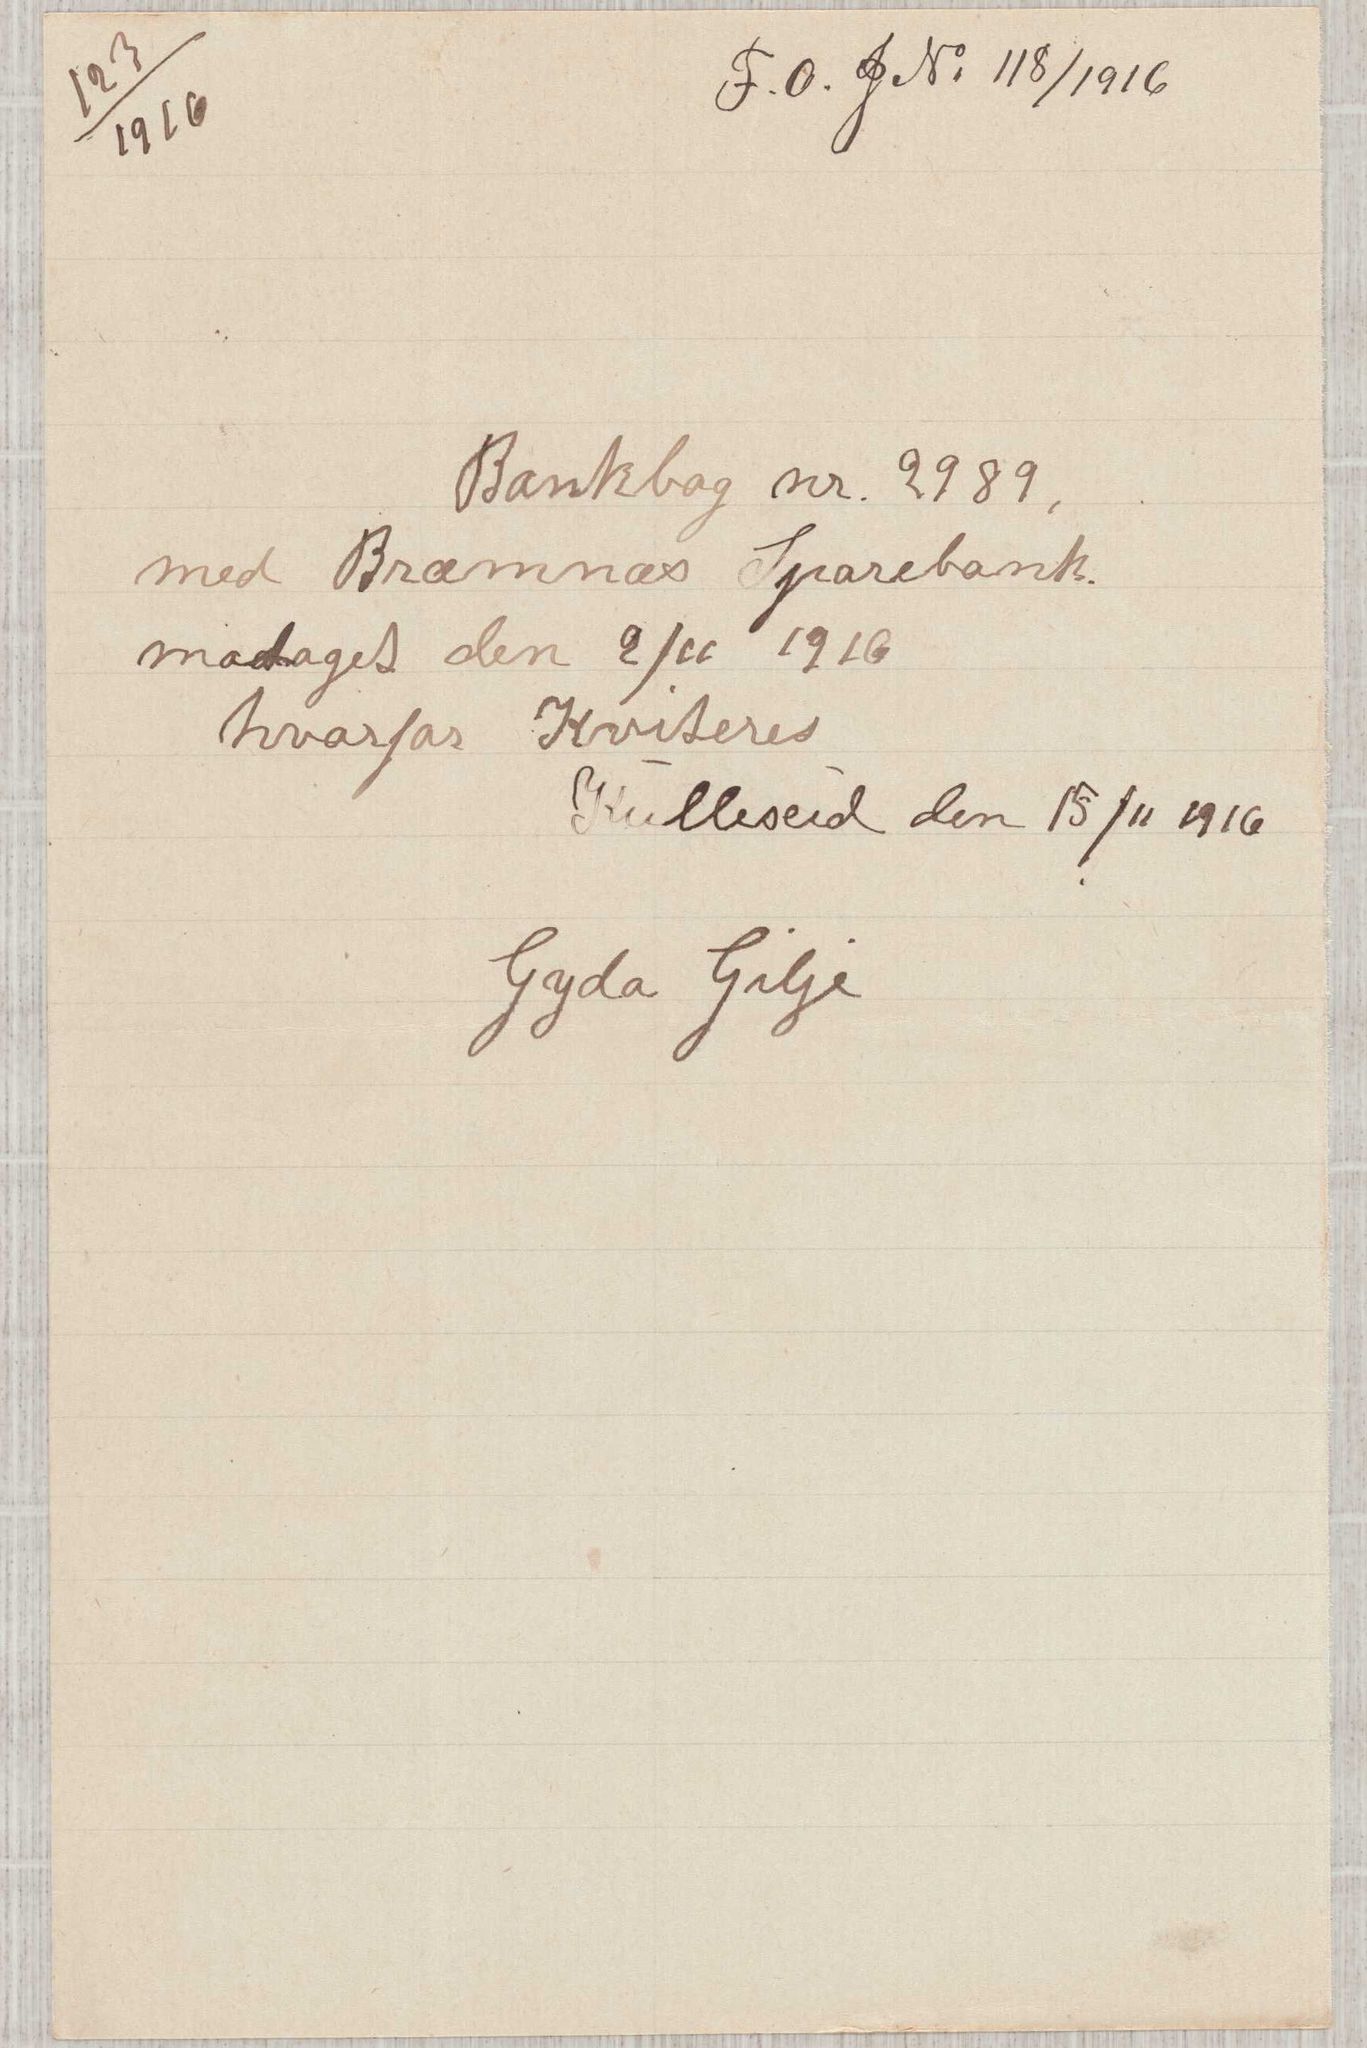 123/1916
F. O. J No 118/1916
Bankbog nr. 2989,
med Bræmnæs Sparebank.
modaget den 2/11 1916
hvorfor Kviteres
Kulleseid den 15/11 1916
Gyda Gilje